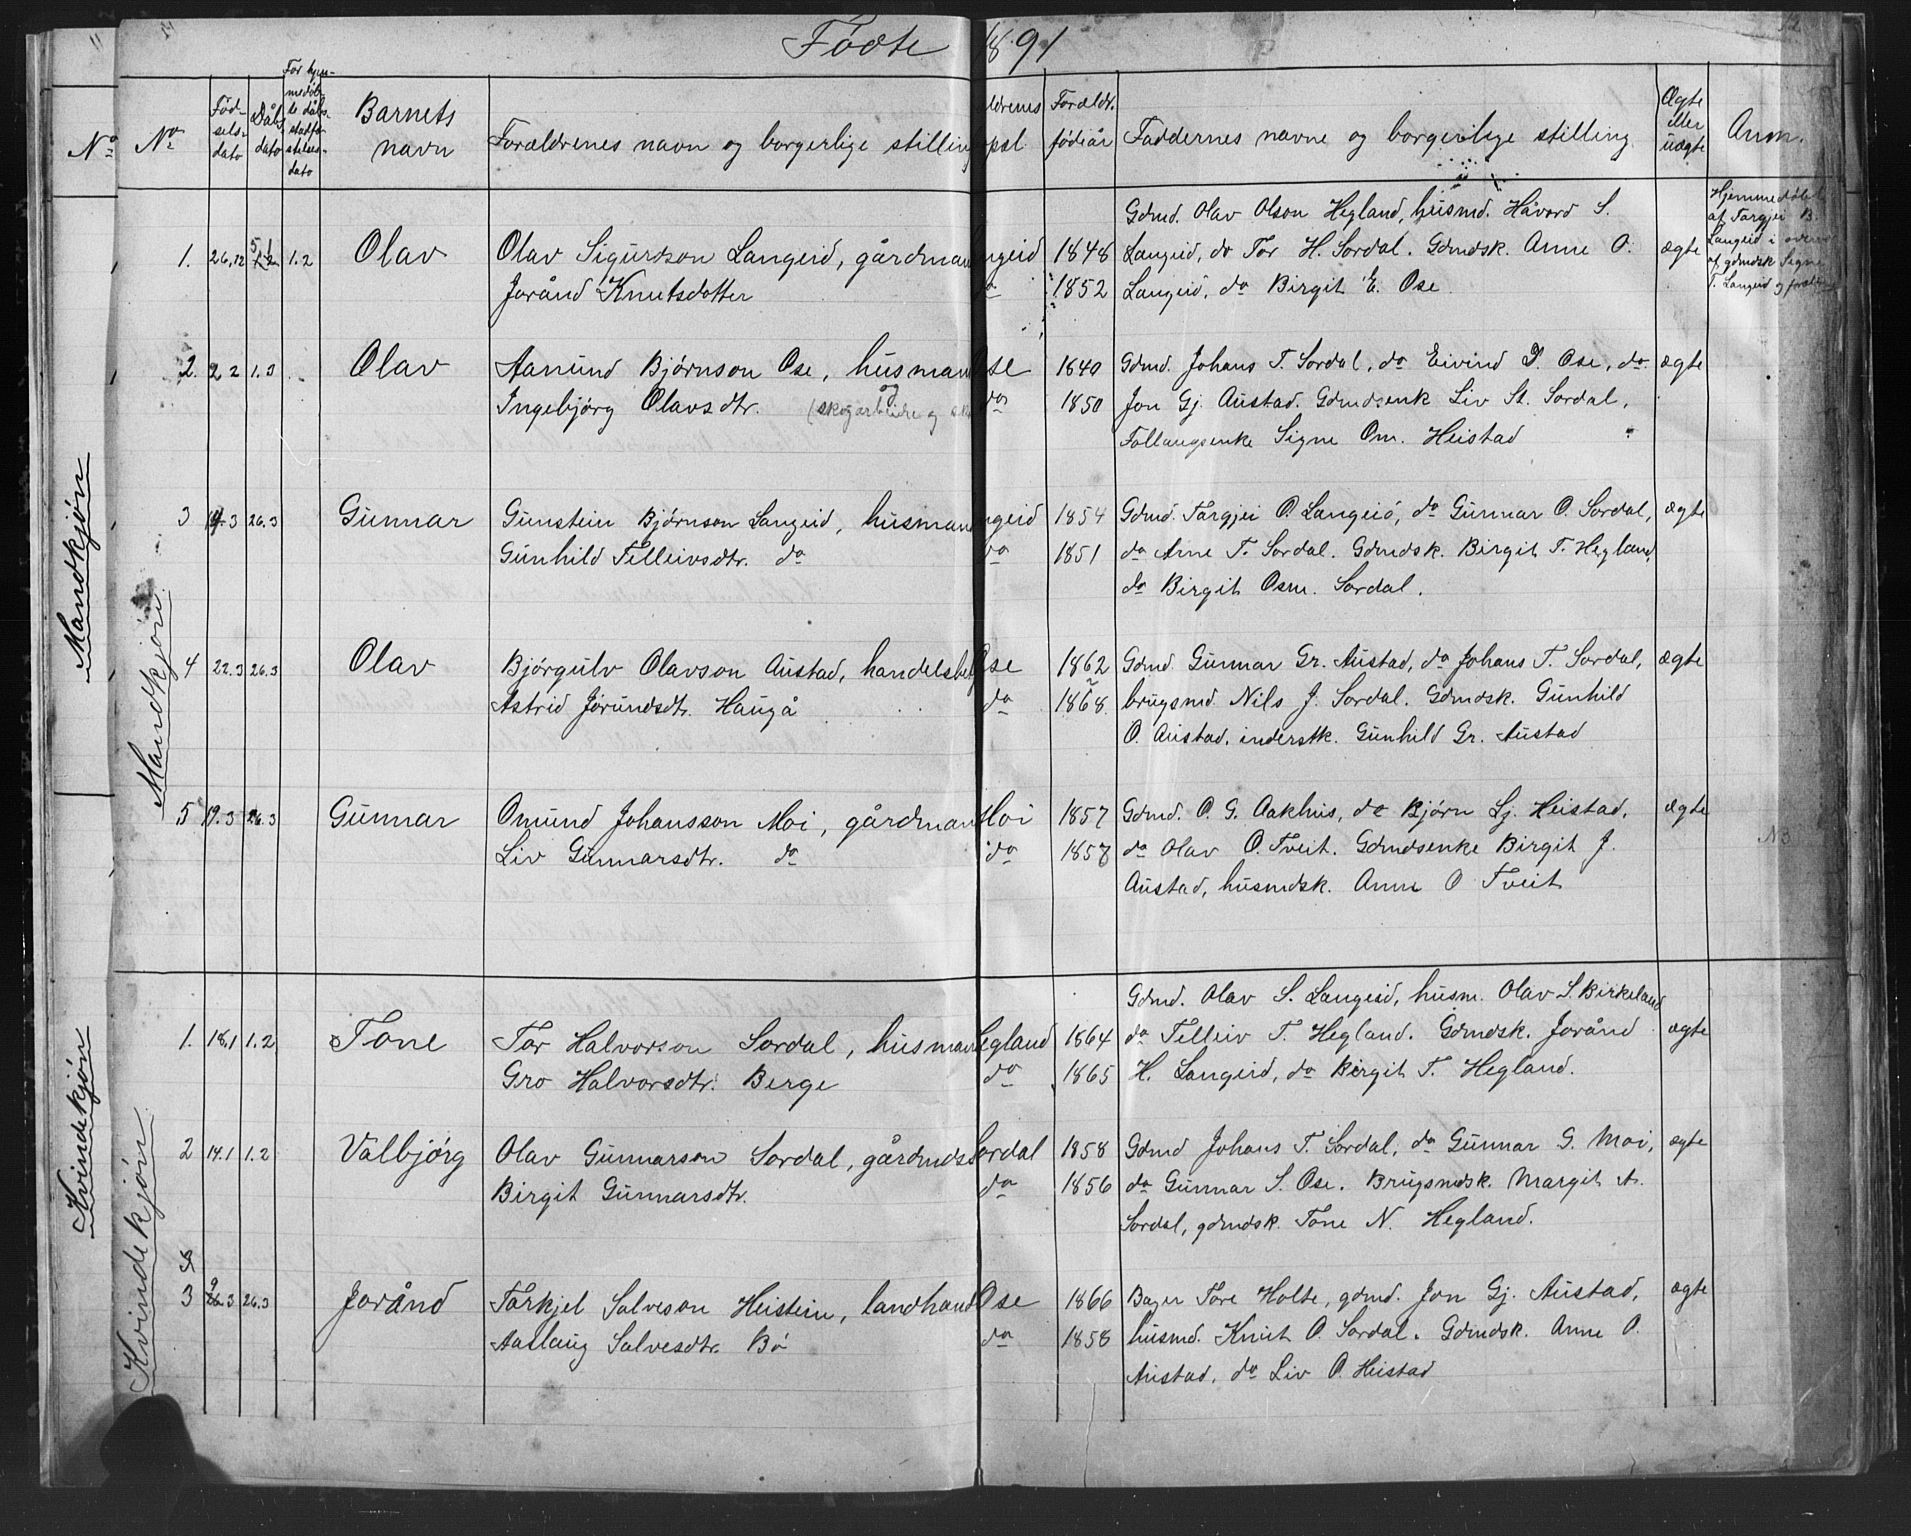 Fødte 1891
No
No
Fødselsdato
Dåbsdato
Barnets navn
Forældrenes navn og borgerlige stilling
Forældr. fødeår
Faddernes navne og borgerlige stilling
Ægte eller uægte
Anm.
Mandkjøn
Mandkjøn
Gdmd. Olav Olson Hegland, husmd. Håvard S.
1. 26.12 1.2 Olav Olav Sigurson Langeid, gårdman 1848 Langeid, do Tor H. Sordal. Gdmdsk. Anne O. ægte
Jorånd Knutsdotter do 1852 Langeid, do Birgit E. Ose
Hjemmedøbt
af Targjei B.
Langeid i overv
af gdmdsk Signe
T. Langeid og foræld
2. 2.2 1.3 Olav Aanund Bjørnson Ose, husman Ose 1840 Gdmd. Johans T. Sordal, do Eivind D. Ose, do ægte
Ingebjørg Olavsdtr. (skogarbeidre og do 1850 Jon Gj. Austad. Gdmdsenk Liv St. Sordal,
Follaugsenke Signe Om. Heistad
3 14.3 26.3 Gunnar Gunstein Bjørnson Langeid, husman ngeid 1854 Gdmd. Targjei O. Langeid, do Gunnar O. Sordal, ægte
Gunhild Telleivsdtr. do do 1851 do Arne T. Sordal. Gdmdsk. Birgit T. Hegland,
do Birgit Osm. Sordal.
4 22.3 26.3 Olav Bjørgulv Olavson Austad, handelsbet Ose 1862 Gdmd. Gunnar Gr. Austad, do Johans T. Sordal, ægte
Astrid Jørundsdtr. Haugå do 1868 brugsmd. Nils J. Sordal. Gdmdsk. Gunhild
O. Austad, inderstk. Gunhild Gr. Austad
5 19.3 26.3 Gunnar Omund Johansson Moi, gårdman Moi 1857 Gdmd. O. G. Aakhus, do Bjørn Lj. Heistad, ægte
Liv Gunnarsdtr. do do 1857 do Olav O. Tveit. Gdmdsenke Birgit J.
Austad, husmdsk. Anne O Tveit
N3
Kvindekjøn
Kvindekjøn
Gdmd. Olav S. Langeid, husm. Olav S. Birkeland
1. 18.1 1.2 Tone Tor Halvorson Sordal, husman Hegland 1864 do Telleiv T. Hegland. Gdmdsk. Jorånd ægte
Gro Halvorsdtr. Berge do 1865 H. Langeid, do Birgit T. Hegland.
2 14.1 1.2 Valbjørg Olav Gunnarson Sordal, gårdmds Sordal 1858 Gdmd Johans T. Sordal, do Gunnar G. Moi, ægte
Birgit Gunnarsdtr. do 1856 do Gunnar S. Ose. Brugsmdsk. Margit A.
Sordal, gdmdsk. Tone N. Hegland.
3 9.3 26.3 Jorånd Tarkjel Salveson Heistein, landhand Ose 1866 Bager Tore Holte, gdmd. Jon Gj. Austad, ægte
Aaslaug Salvesdtr. Bø do 1858 husmd. Knut O. Sordal. Gdmdsk. Anne O.
Austad, do Liv O. Heistad